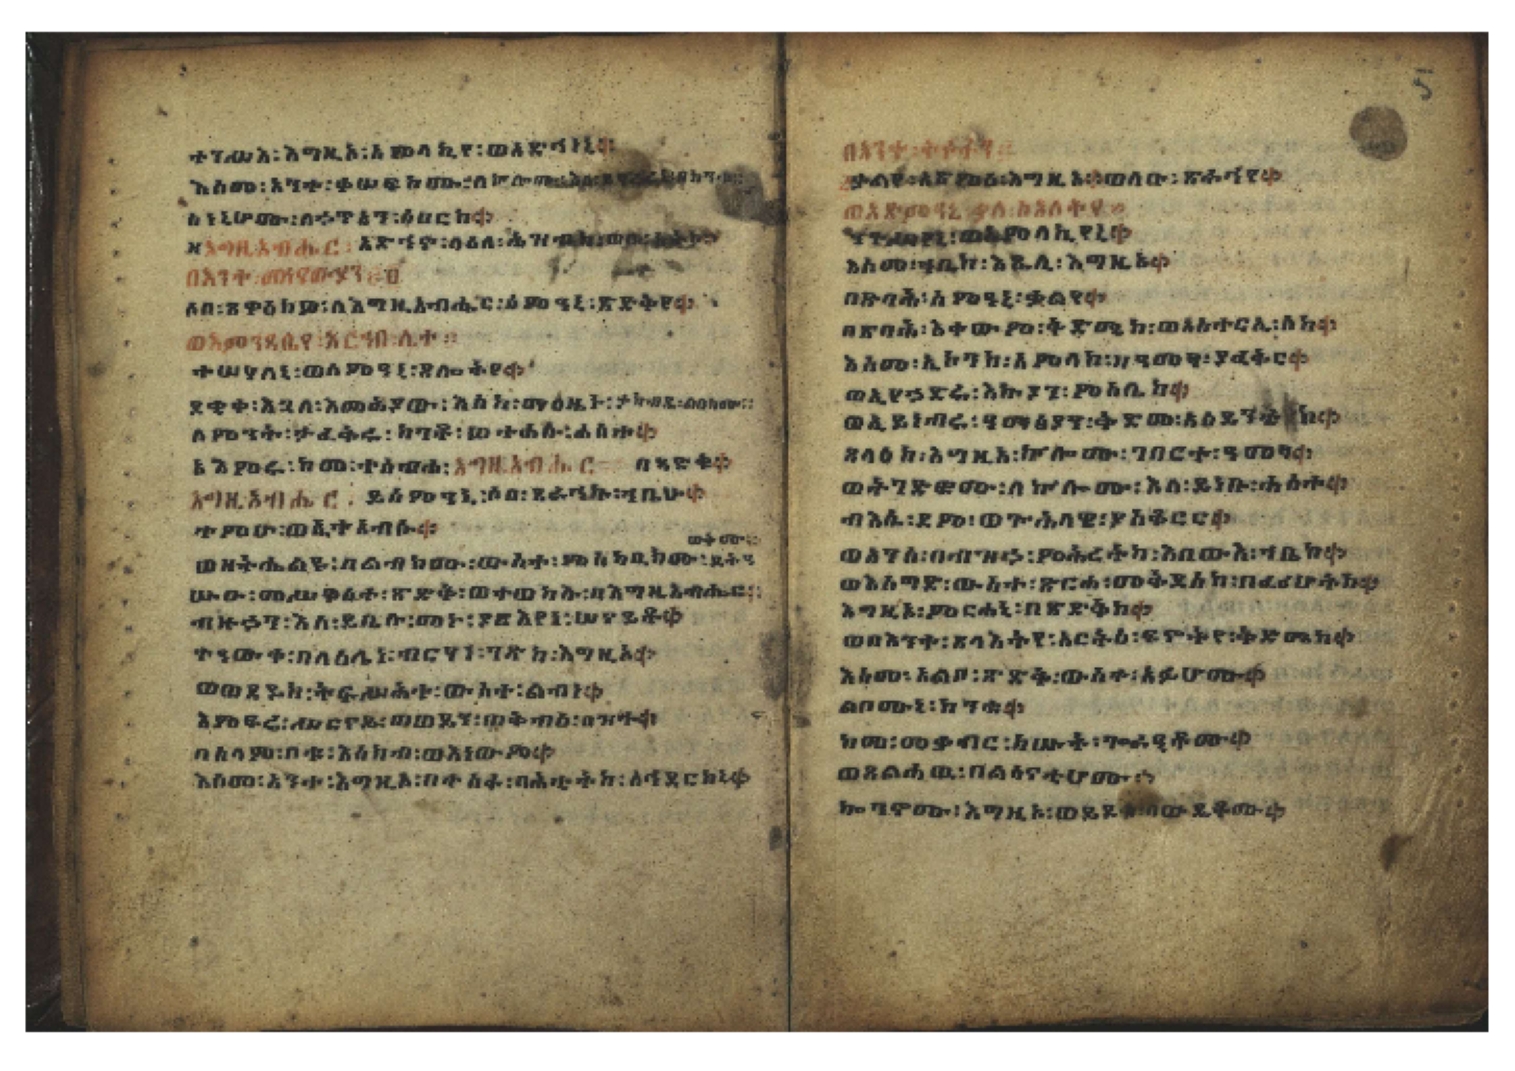 ተንሥእ፡እግዚኦ፡አምላኪየ፡ወአድኅነኒ፨
እስመ፡አንተ፡ቀሠፍከሙ፡ለኵሎሙ፡እለ፡ይፃረሩኒ፡በከንቱ፡
ስነኒሆሙ፡ለኃጥኣን፡ሰበርከ፨
ዘእግዚአብሔር፡አድኅኖ፡ላዕለ፡ሕዝብከ፡
በእንተ፡
ሶበ፡ጸዋዕክዎ፡ለእግዚአብሔር፡ሰምዐኒ፡ጽድቅየ፨
ወእምንዳቤየ፡አርኀበ፡ሊተ፨
ተሣሃለኒ፡ወስምዐኒ፡ጸሎትየ፨
ደቂቀ፡እጓለ፡እመሕያው፡እስከ፡ማእዜኑ፡ታከብዱ፡ልበክሙ፨
ለምንት፡ታፈቅሩ፡ከንቶ፡ወተኀሡ፡ሐሰተ፨
አእምሩ፡ከመ፡ተሰብሐ፡እግዚአብሔር፡በጻድቁ፨
እግዚአብሔር፡ይሰምዐኒ፡ሶበ፡ጸራኅኩ፡ኀቤሁ፨
ተምዑ፡ወኢተአብሱ፨
ወዘትሔልዩ፡በልብክሙ፡ውስተ፡ምስካቢክሙ፡
ሡዑ፡መሥዋዕተ፡ጽድቅ፡ወተወከሉ፡በእግዚአብሔር፨
ብዙኃን፡እለ፡ይቤሉ፡መኑ፡ያርእየነ፡ሠናይቶ፨
ተዐውቀ፡በላዕሌነ፡ብርሃነ፡ገጽከ፡እግዚኦ፨
ወወደይከ፡ትፍሥሕተ፡ውስተ፡ልብነ፨
እምፍሬ፡ሥርናይ፡ወወይን፡ወቅብዕ፡በዝኀ፨
በሰላም፡ቦቱ፡እሰክብ፡ወእነውም፨
እስመ፡አንተ፡እግዚኦ፡በተስፋ፡ባሕቲትከ፡አኅደርከኒ፨
5
በእንተ፡
ቃልየ፡አፅምዕ፡እግዚኦ፡ወለቡ፡ጽራኅየ፨
ወአፅምዐኒ፡ቃለ፡ስእለትየ፨
ንጉሥየኒ፡ወአምላኪየኒ፨
እስመ፡ኀቤከ፡እጼሊ፡እግዚኦ፨
በጽባሕ፡ስምዐኒ፡ቃልየ፨
በጽባሕ፡እቀውም፡ቅድሜከ፡ወአስተርኢ፡ለከ፨
እስመ፡ኢኮንከ፡አምላከ፡ዘዐመፃ፡ያፈቅር፨
ወኢየኃድሩ፡እኩያን፡ምስሌከ፨
ወኢይነብሩ፡ዓማፅያን፡ቅድመ፡አዕይንቲከ፨
ጸላእከ፡እግዚኦ፡ኵሎሙ፡ገበርተ፡ዓመፃ፨
ወትገድፎሙ፡ለኵሎሙ፡እለ፡ይነቡ፡ሐሰተ፨
ብእሴ፡ደም፡ወጕሕላዌ፡ያስቆርር፨
ወአንሰ፡በብዝኃ፡ምሕረትከ፡እበውእ፡ቤተከ፨
ወእሰግድ፡ውስተ፡ጽርሐ፡መቅደስከ፡በፈሪሆትከ፨
እግዚኦ፡ምርሐኒ፡በጽድቅከ፨
ወበእንተ፡ጸላእትየ፡አርትዕ፡ፍኖትየ፡ቅድሜከ፨
እስመ፡አልቦ፡ጽድቅ፡ውስተ፡አፉሆሙ፨
ልቦሙኒ፡ከንቱ፨
ከመ፡መቃብር፡ክሡት፡ጐራዒቶሙ፨
ወጸልሐዉ፡በልሳናቲሆሙ፨
ኰንኖሙ፡እግዚኦ፡ወይደቁ፡በውዴቶሙ፨